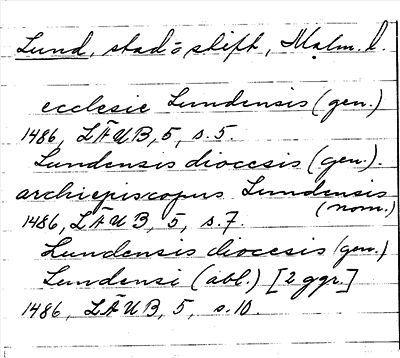 Lund, stad o stift, Malm. l.
ecclesie Lundensis (gen.)
1486, LÄUB, 5, s. 5.
Lundensis diocesis (gen.).
archiepiscopus Lundensis
(nom.)
1486, LÄUB, 5, s. 7.
Lundensis diocesis (gen.)
Lundensi (abl.) [2 ggr.]
1486, LÄUB, 5, s. 10.